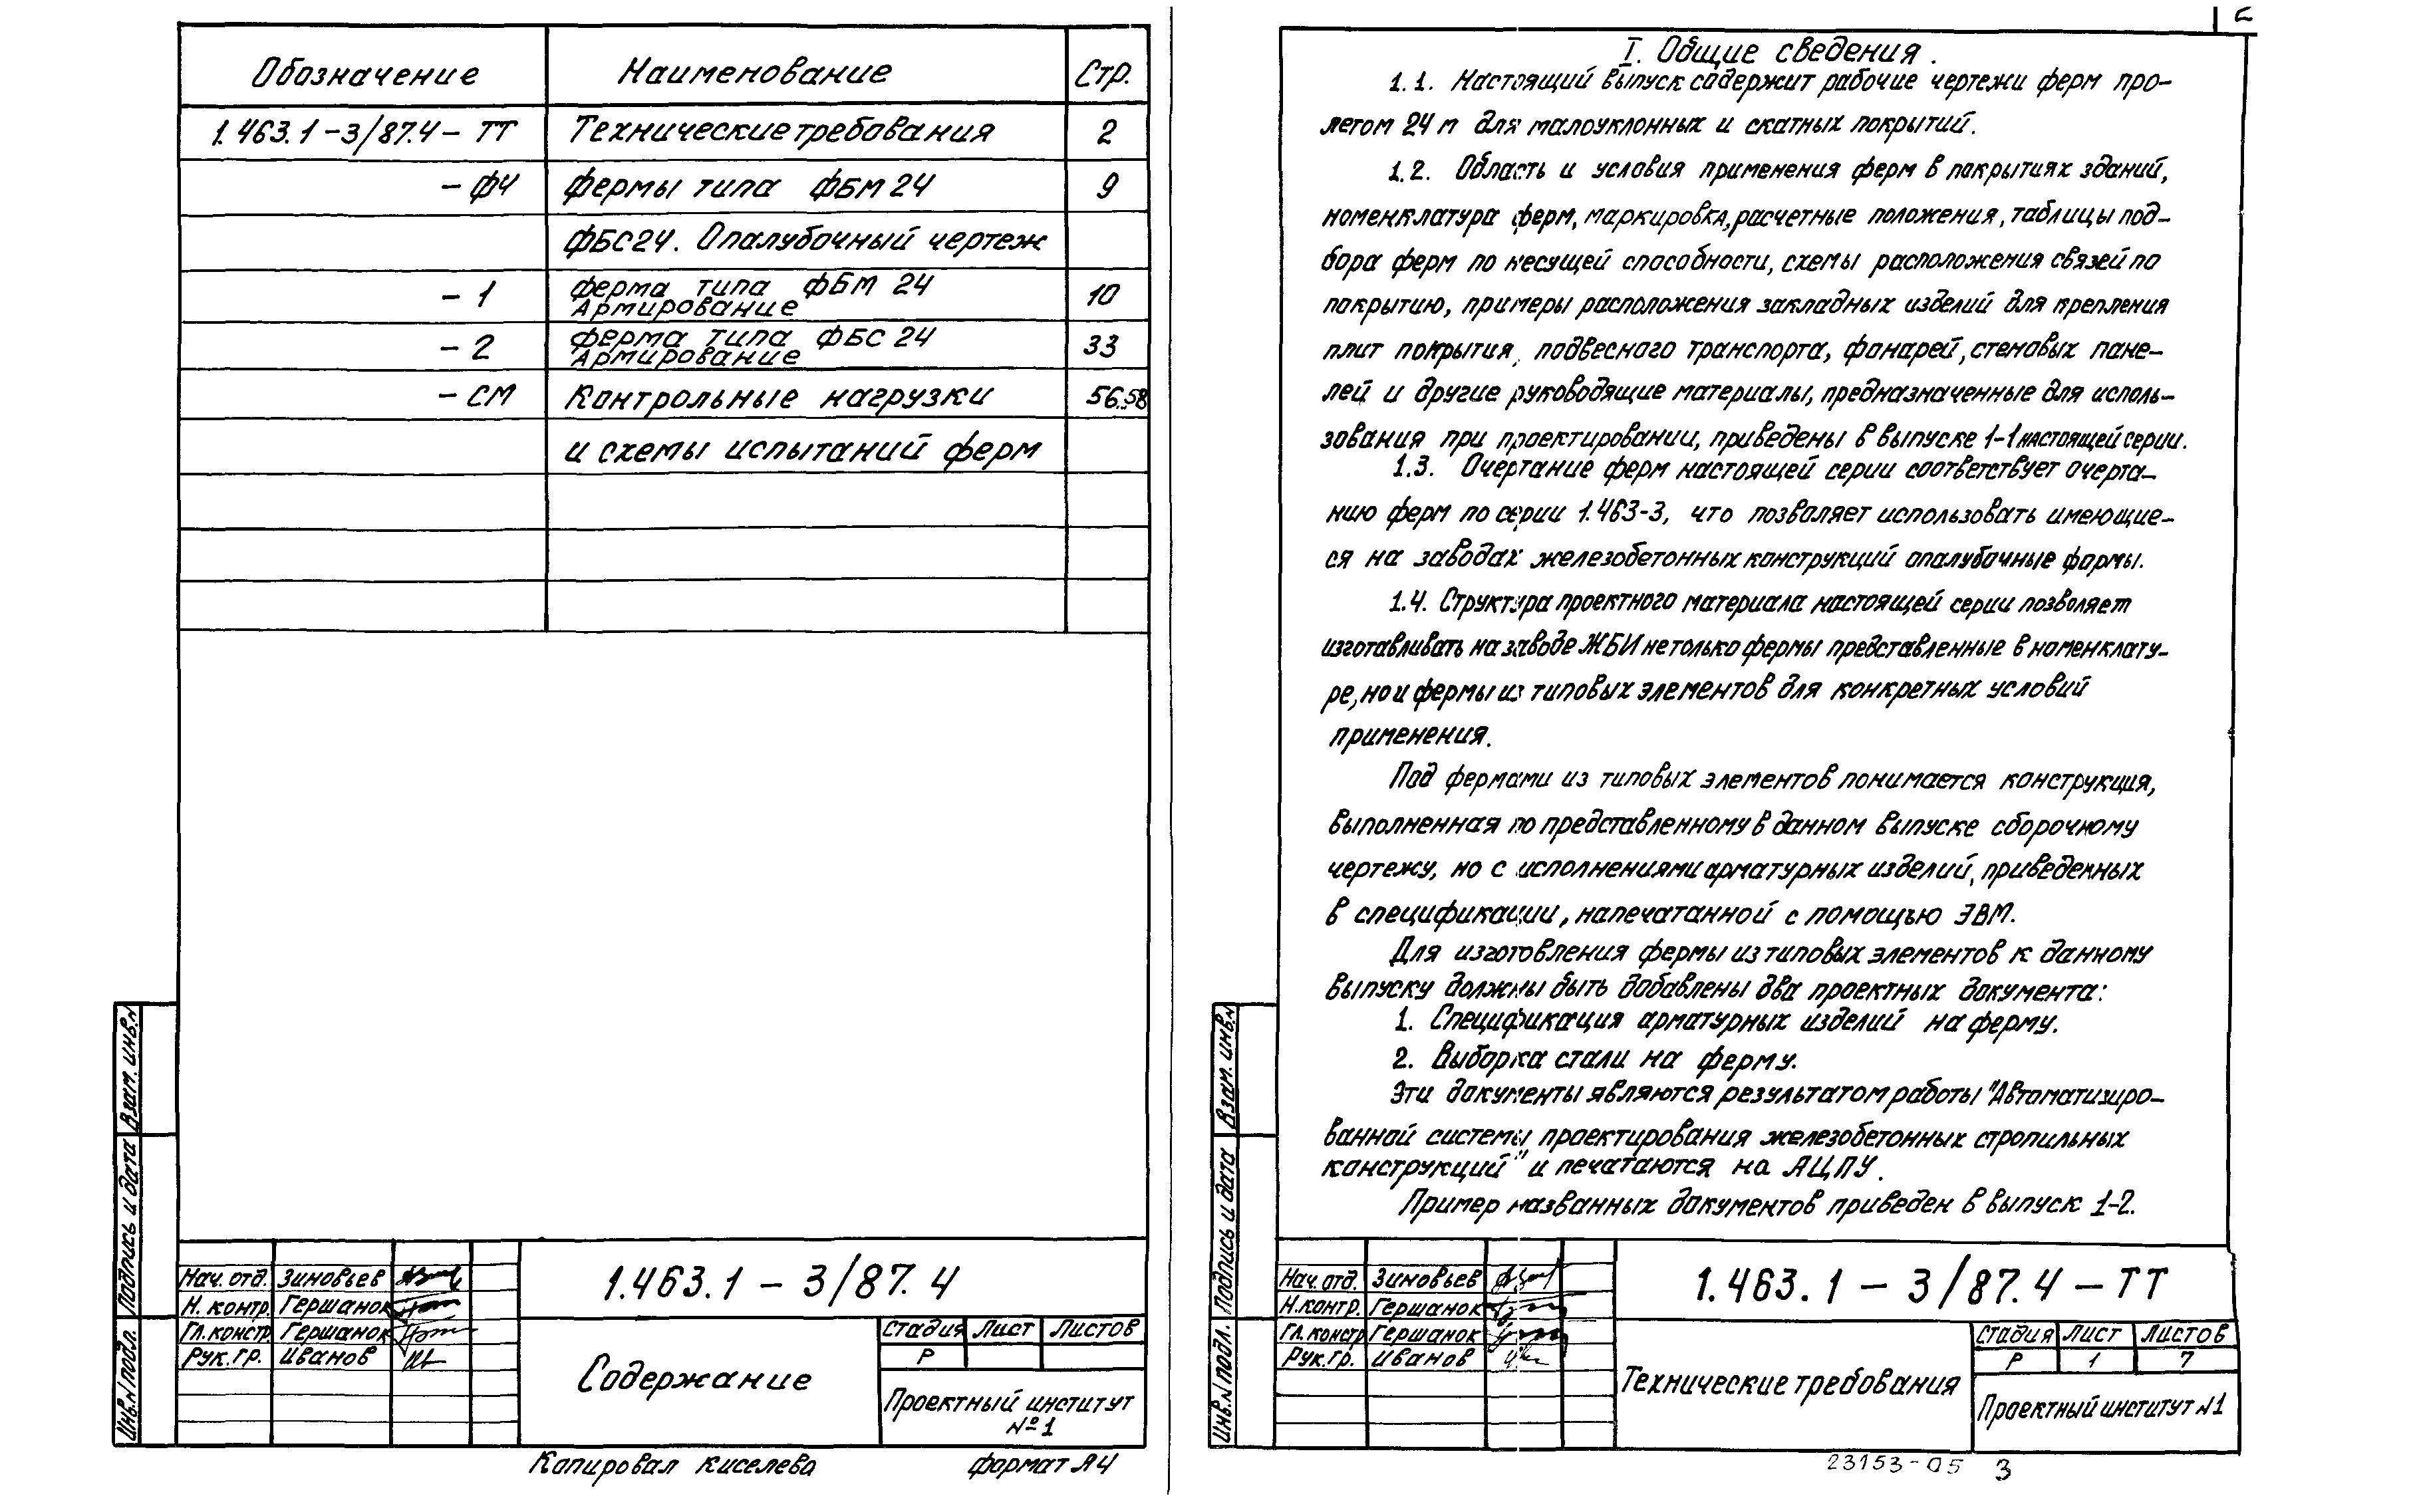 Обозначение Наименование Стр.
1.463.1-3/87.4- ТТ Технические требования 2
- ФЧ Фермы типа ФБМ 24 9
ФБС24. Опалубочный чертеж
- 1 Ферма типа ФБМ 24 10
Армирование
- 2 Ферма типа ФБС 24 33
Армирование
- СМ Контрольные нагрузки 56..58
и схемы испытаний ферм
Взам. инв.N
Подпись и дата
Инв.N подл.
Нач. отд. Зиновьев
Н. контр. Гершанок
Гл.констр Гершанок
Рук.гр. Иванов
1.463.1 - 3/87.4
Содержание
Стадия Лист Листов
Р
Проектный институт
№1
Копировал Киселева формат А4
I. Общие сведения.
1.1. Настоящий выпуск содержит рабочие чертежи ферм про-
летом 24 м для малоуклонных и скатных покрытий.
1.2. Область и условия применения ферм в покрытиях зданий,
номенклатура ферм, маркировка, расчетные положения, таблицы под-
бора ферм по несущей способности, схемы расположения связей по
покрытию, примеры расположения закладных изделий для крепления
плит покрытия, подвесного транспорта, фонарей, стеновых пане-
лей и другие руководящие материалы, предназначенные для исполь-
зования при проектировании, приведены в выпуске 1-1 настоящей серии.
1.3. Очертание ферм настоящей серии соответствует очерта-
нию ферм по серии 1.463-3, что позволяет использовать имеющие-
ся на заводах железобетонных конструкций опалубочные формы.
1.4. Структура проектного материала настоящей серии позволяет
изготавливать на заводе ЖБИ не только фермы представленные в номенклату-
ре, но и фермы из типовых элементов для конкретных условий
применения.
Под фермами из типовых элементов понимается конструкция,
выполненная по представленному в данном выпуске сборочному
чертежу, но с исполнениями арматурных изделий, приведенных
в спецификации, напечатанной с помощью ЭВМ.
Для изготовления фермы из типовых элементов к данному
выпуску должны быть добавлены два проектных документа:
1. Спецификация арматурных изделий на ферму.
2. Выборка стали на ферму.
Эти документы являются результатом работы "Автоматизиро-
ванной системы проектирования железобетонных стропильных
конструкций" и печатаются на АЦПУ.
Пример названных документов приведен в выпуск 1-2.
Взам. инв.N
Подпись и дата
Инв.N подл.
Нач. отд. Зиновьев
Н.контр. Гершанок
Гл. констр Гершанок
Рук.гр. Иванов
1.463.1 - 3/87.4 - ТТ
Технические требования
Стадия Лист Листов
Р 1 7
Проектный институт N1
23153-05 3